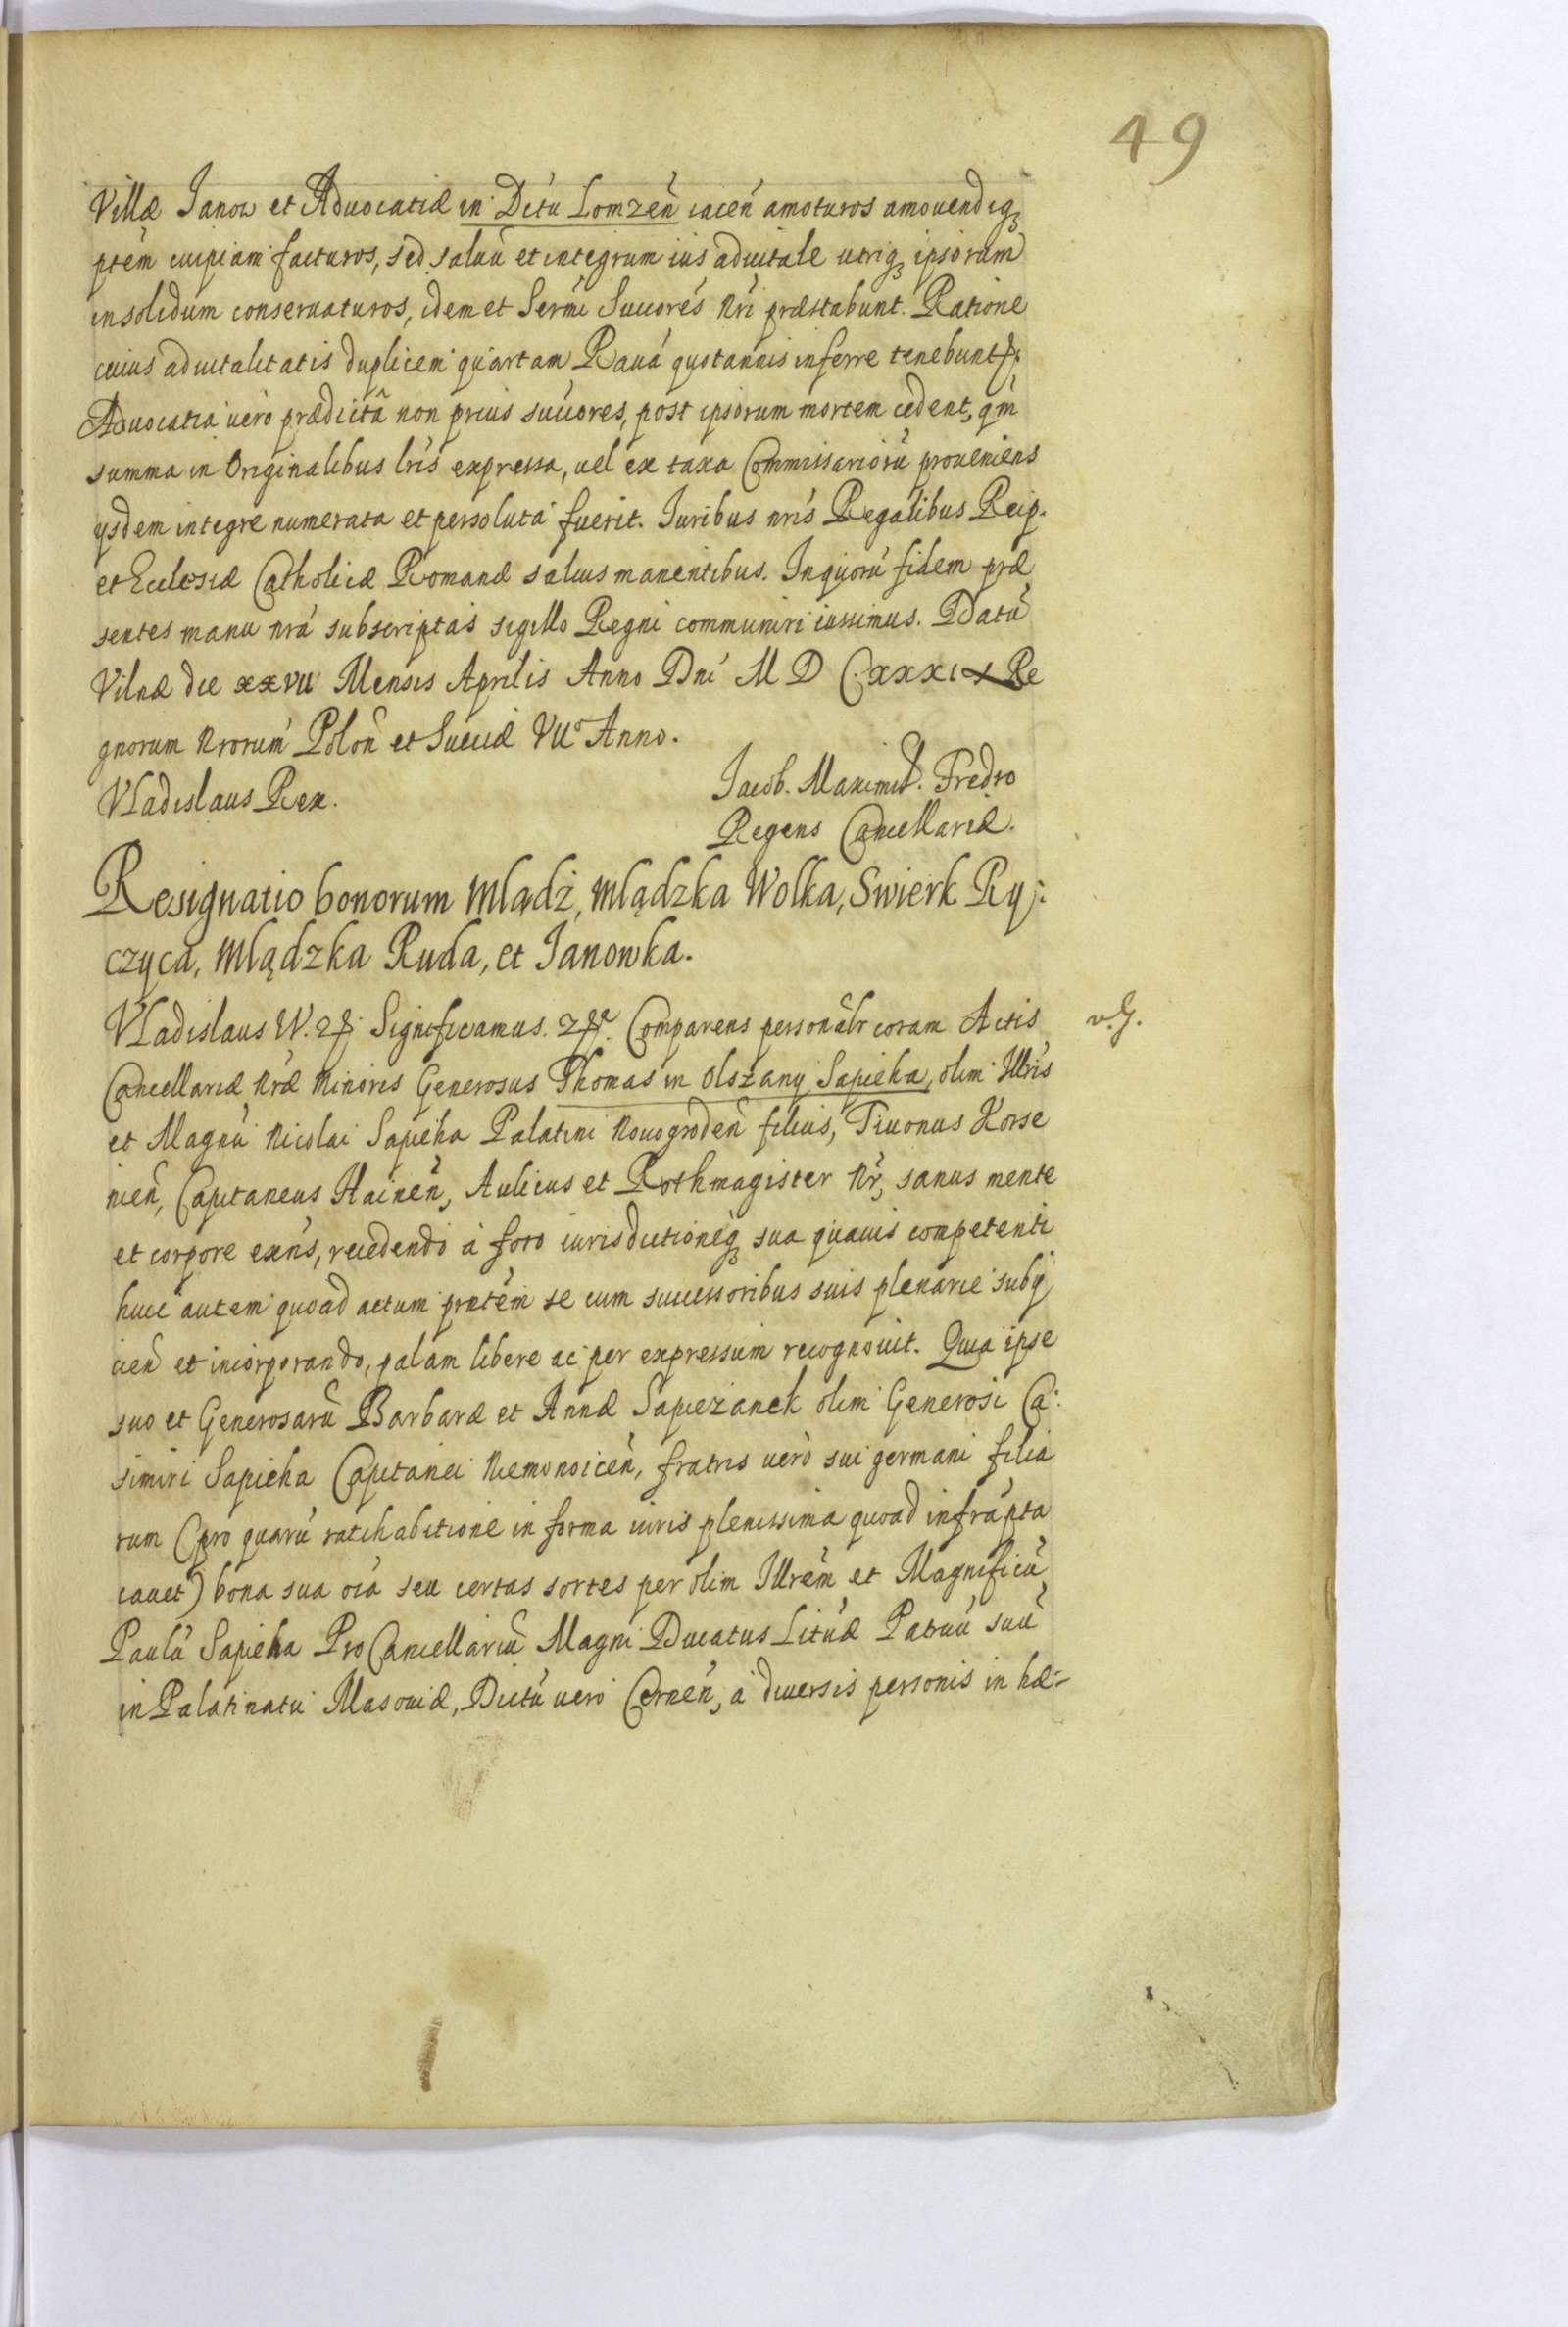 49
Villæ Janow et Aduocatiæ in Dctu Lomzeñ iaceñ amoturos amouendiq3
ptem cuipiam facturos, sed saluũ et integrum ius aduitale utriq3 ipsorum
insolidum conseruaturos, idem et Sermi Suuores Nri præstabunt. Ratione
cuius aduitalitatis duplicem quartam Rauã quotannis inferre tenebuntr.
Aduocatia uero prædicta non prius suuores, post ipsorum mortem cedent, qm
summa in Originalibus lris expressa, uel ex taxa Commissariorũ proueniens
ysdem integre numerata et persoluta fuerit. Juribus nris Regalibus Reip.
et Ecclesiæ Catholicæ Romanæ saluis manentibus. In quorũ fidem præ
sentes manu nra subscriptas sigillo Regni communiri iussimus. Datũ
Vilnæ die xxvii Mensis Aprilis Anno Dni M D C xxxix Re
gnorum Nrorum Poloñ et Sueciæ VIIo Anno.
Vladislaus Rex. Jacob. Maximil. Fredro
Regens Cancellariæ.
Resignatio bonorum Mlądż, Mlądzka Wolka, Swierk Ry:
czyca, Mlądzka Ruda, et Janowka.
Vladislaus IV. Significamus. Comparens personalr coram Actis v.g.
Cancellariæ Nræ Minoris Generosus Thomas in Olszany Sapieha, olim Illris
et Magnci Nicolai Sapieha Palatini Nouogrodeñ filius, Tiuonus Korse
nieñ, Capitaneus Haineñ, Aulicus et Rothmagister Nr, sanus mente
et corpore exñs, recedendo à foro iurisdictioneq3 sua quauis competenti
huic autem quoad actum pntem se cum successoribus suis plenarie suby
cieñ et incorporando, palam libere ac per expressum recognouit. Quia ipse
suo et Generosarũ Barbaræ et Annæ Sapiezanek olim Generosi Ca:
simiri Sapieha Capitanei Niemonoiceñ, fratris uero sui germani filia
rum (pro quarũ ratihabitione in forma iuris plenissima quoad infrapta
cauet) bona sua oia seu certas sortes per olim Illrem et Magnificũ
Paulũ Sapieha ProCancellariũ Magni Ducatus Lituæ Patruũ suũ
in Palatinatu Masouiæ, Dictu uero Cerneñ, a diuersis personis in hæ-